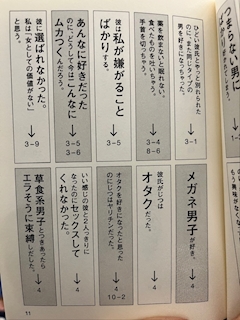 つまらない男に
ひどい彼氏とやっと別れられた
のに、また同じタイプの
男を好きになっちゃった。
↓
3-1
薬を飲まないと眠れない。
食べたものを吐いちゃう。
手首を切っちゃう。
↓
3-4
8-6
彼は私が嫌がること
ばかりする。
↓
3-5
あんなに好きだった
のに、どうして今はこんなに
ムカつくんだろう。
↓
3-5
3-6
彼に選ばれなかった。
私は「女としての価値がない」
と思う。
↓
3-9
メガネ男子が好き。
↓
4
彼氏がじつは
オタクだった。
↓
4
オタクを好きになったと思った
のにじつはヤリチンだった。
↓
4
10-2
いい感じの彼と二人っきりに
なったのにセックスして
くれなかった。
↓
4
草食系男子とつきあったら
エラそうに束縛しだした。
↓
4
11